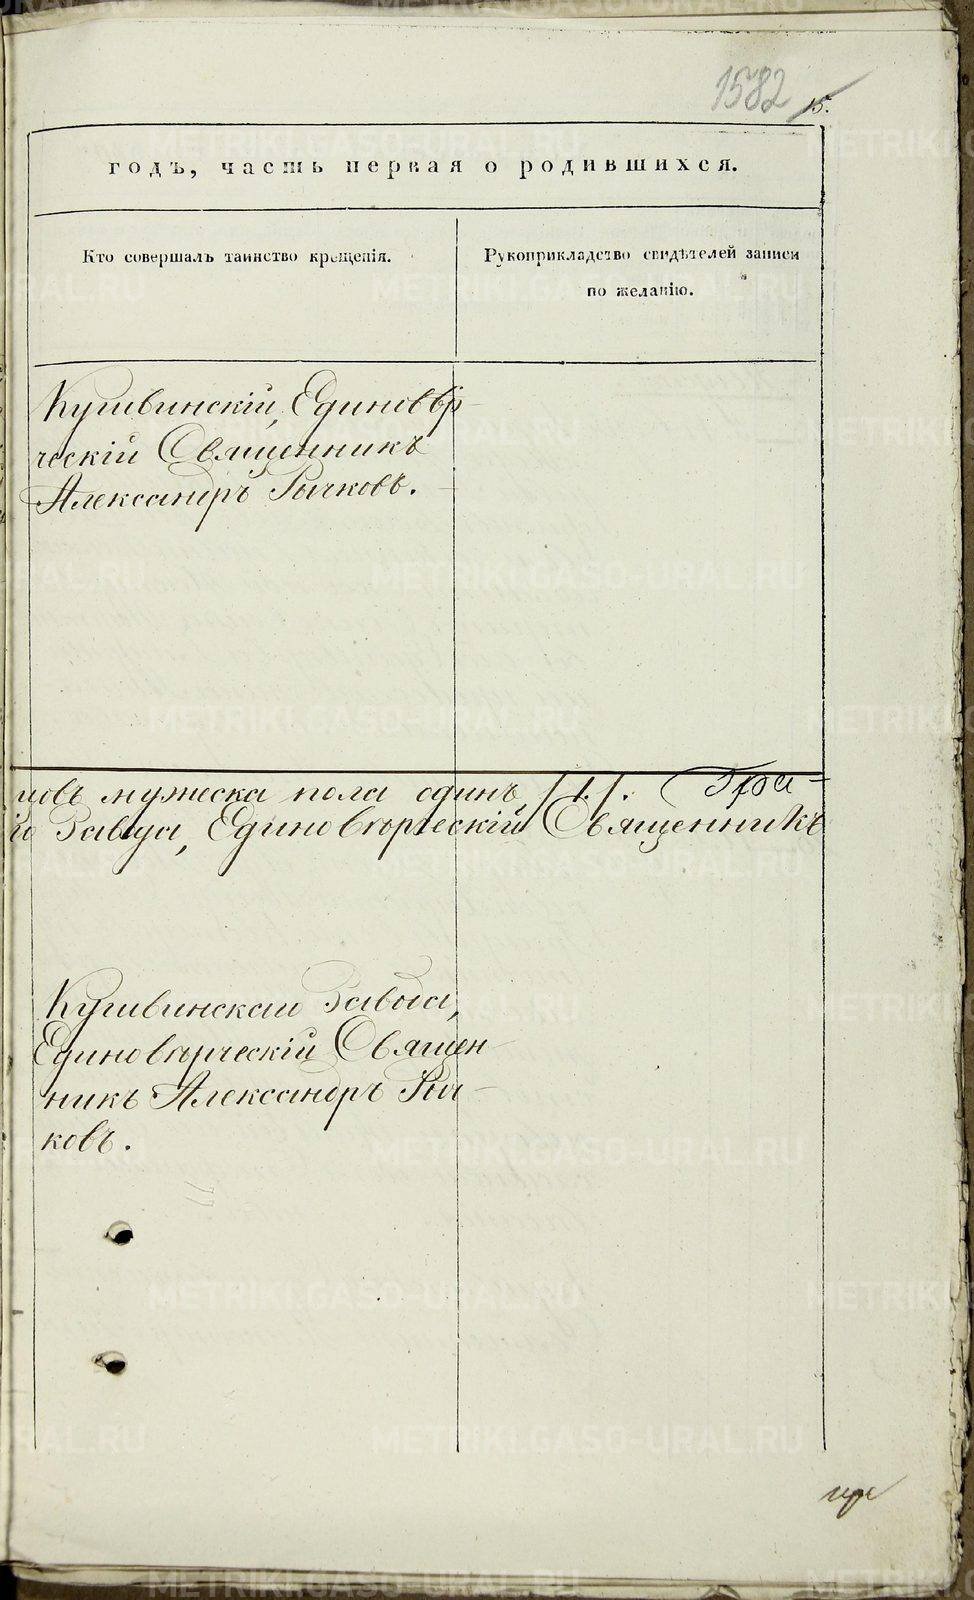 1582 15.
годъ, часть первая о родившихся.
Кто совершалъ таинство крещенія.
Рукоприкладство свидѣтелей записи
по желанію.
Кушвинскій, Единовѣр-
ческій Священникъ
Александръ Рычковъ.
мужеска пола одинъ, /1./.
Завода, Единовѣрческій Священникъ
Кушвинскаго Завода,
Единовѣрческій Священ-
никъ Александръ Рыч-
ковъ.
METRIKI.GASO-URAL.RU